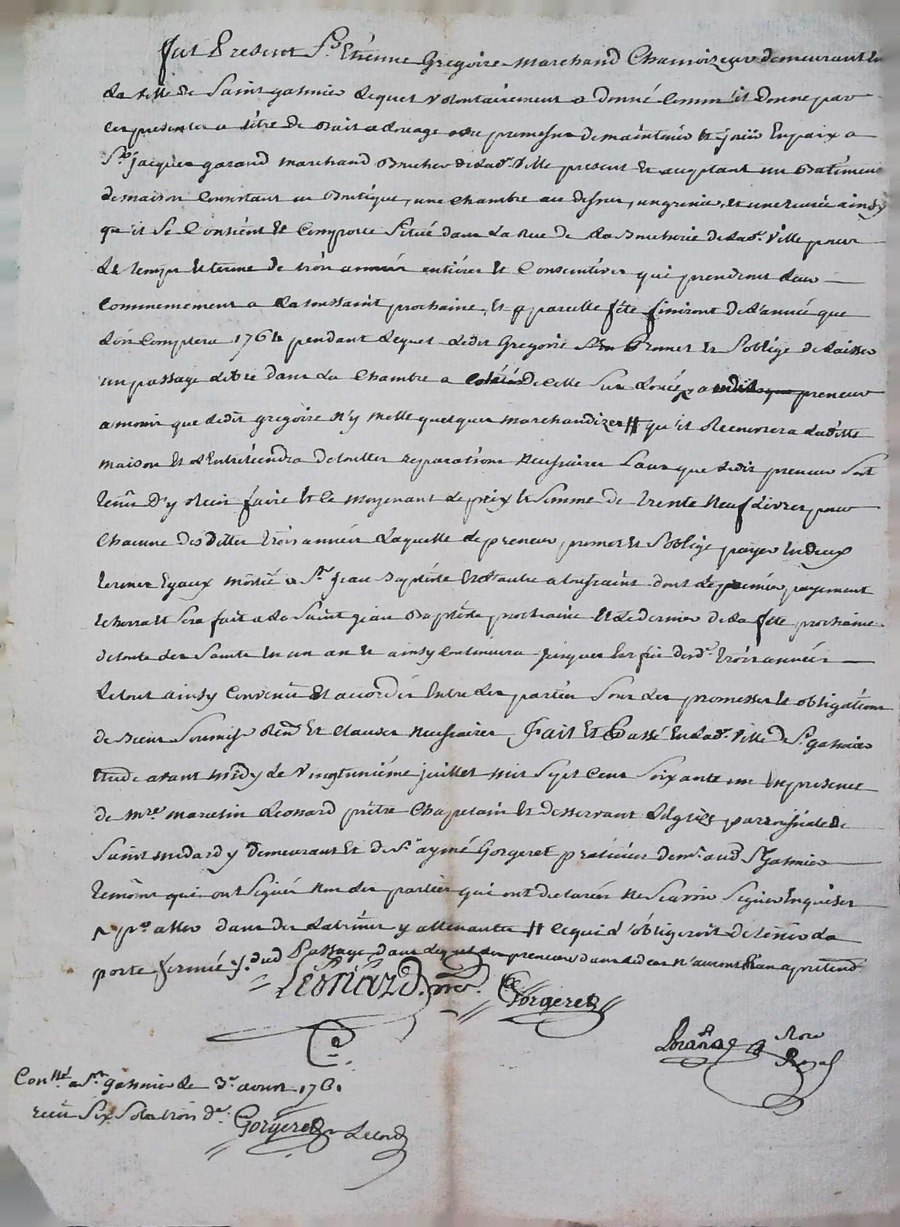 fut Present Sr Etienne Gregoire marchand Chamoizeur demeurant en
la ville de Saint galmier lequel volontairement a donné Comm'il donne par
ces presentes a titre de Bail a louage avec promesse de maintenir et jouir En paix a
Sr jacques garand marchand Boucher de lad. Ville present et acceptant un Batiment
de maison Consistant en Boutique, une chambre au dessus, un grenier, et une ainsy
qu'il Se Contient et Comporte Situé dans La Rue de La Boucherie de lad. Ville pour
Le temps et terme de trois années entières et Consecutives qui prendront leur
commencement a la toussaint prochaine, Et a pareille fête finiront de l'année que
L'on Comptera 1764 pendant lequel ledit Gregoire Promet et S'oblige de laisser
un passage Libre dans La Chambre a Costé de celle Sur Louée preneur
a moins que ledit gregoire n'y mette quelques marchandizes # qu'il Recouvrira Laditte
maison Et L'Entretiendra de touttes reparations necessaires Sans que ledit preneur Soit
tenu D'y Rien faire Et ce moyenant le prix et Somme de trente neuf Livres pour
Chacune des dittes trois années Laquelle le preneur promet et S'oblige payer En deux
termes Egaux moitié a St jean Baptiste Et l'autre a toussaint dont Le premier payement
Echerra et Sera fait a La Saint jean Baptiste prochaine Et Le dernier de La fête prochaine
de toute les Saints En un an et ainsy Continuera jusques En fin desd. trois années
Le tout ainsy Convenu Et accordé Entre Les parties Sous Les promesses et obligations
de Biens Soumise Renon Et clauses necessaires fait Et Passé En lad. Ville de St galmier
Etude avant midy Le vingtunième juillet mil Sept Cent Soixante un En presence
de mre marcelin Leonard prêtre Chapelain Et desservant L'Eglise parroissiale de
Saint medard y demeurant Et de Sr aymé Gorgeret praticien demt aud St Galmier
temoins qui ont Signés non les parties qui ont declarées ne Scavoir Signer Enquises
pr aller dans les Latrines y attenantes # Ce qui l'obligeroit de tenir La
porte fermée dud. Passage dans lequel le preneur n'auront Rien a pretendre
Leonard. ptre. Gorgeret
Nore
Royal
Conllé a St galmier le 3e aoust 1761
reçu Six Sols trois ds. Gorgeret